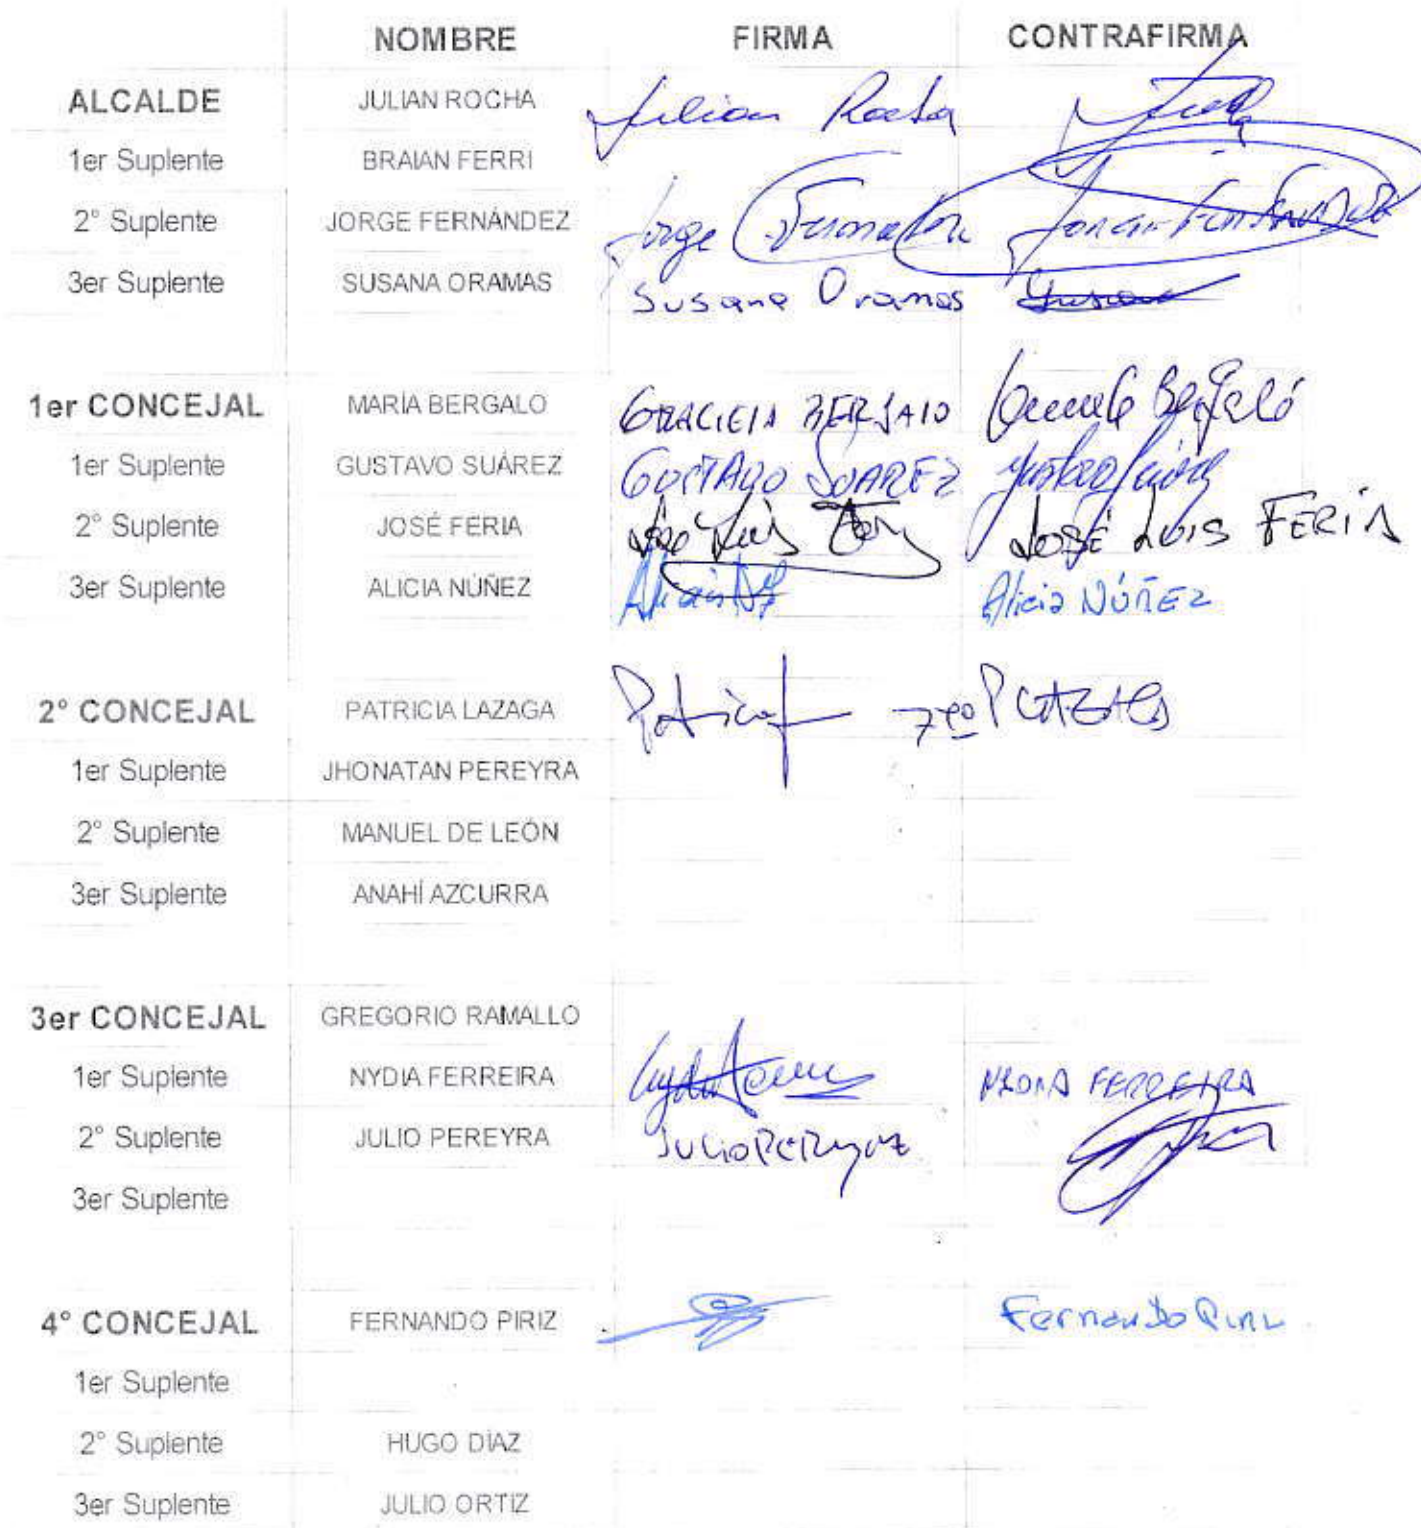 NOMBRE FIRMA CONTRAFIRMA
ALCALDE JULIAN ROCHA Julian Rocha
1er Suplente BRAIAN FERRI
2° Suplente JORGE FERNÁNDEZ Jorge Fernandez
3er Suplente SUSANA ORAMAS Susana Oramas Susana
1er CONCEJAL MARÍA BERGALO GRACIELA BERGALO Bergaló
1er Suplente GUSTAVO SUÁREZ GUSTAVO SUAREZ Gustavo Suárez
2° Suplente JOSÉ FERIA José Luis JOSÉ LUIS FERIA
3er Suplente ALICIA NÚÑEZ Alicia NÚÑEZ
2° CONCEJAL PATRICIA LAZAGA Patricia
1er Suplente JHONATAN PEREYRA
2° Suplente MANUEL DE LEÓN
3er Suplente ANAHÍ AZCURRA
3er CONCEJAL GREGORIO RAMALLO
1er Suplente NYDIA FERREIRA NYDIA FERREIRA
2° Suplente JULIO PEREYRA JULIO PEREYRA
3er Suplente
4° CONCEJAL FERNANDO PIRIZ Fernando Piriz
1er Suplente
2° Suplente HUGO DÍAZ
3er Suplente JULIO ORTIZ